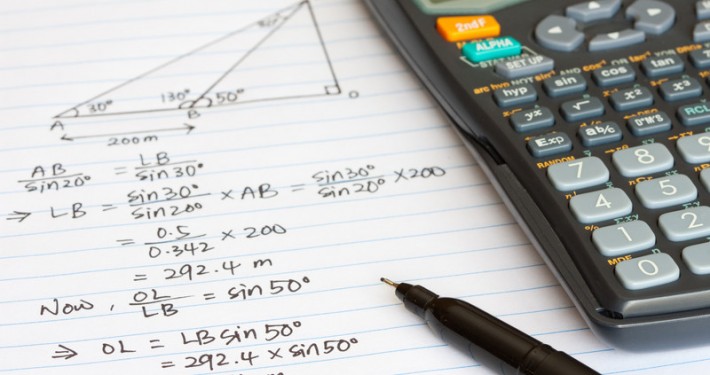 30° 130° 50°
A B O
200m
AB/sin20° = LB/sin30°
⇒ LB = sin30°/sin200 × AB = sin30°/sin20° × 200
= 0.5/0.342 × 200
= 292.4 m
Now, OL/LB = sin50°
⇒ OL = LB sin50°
= 292.4 × sin50°
2ndF
ALPHA
SET UP
hyp sin cos tan
yˣ √ x² x³
Exp ab/c D°M'S RCL
RANDOM
7 8 9
4 5
1 2
MDF
0